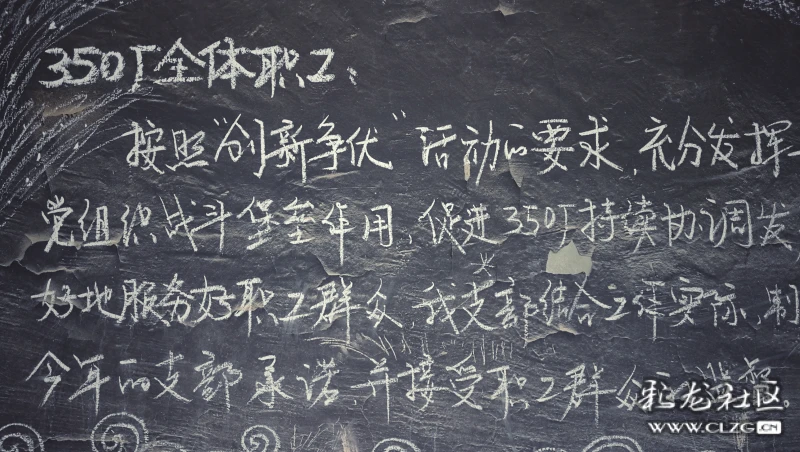 350厂全体职工：
按照“创新争优”活动的要求，充分发挥
党组织战斗堡垒作用，促进350厂持续协调发
好地服务好职工群众，我支部结合工作实际，制
今年的支部承诺，并接受职工群众监督。
乾龙社区
WWW.CLZG.CN